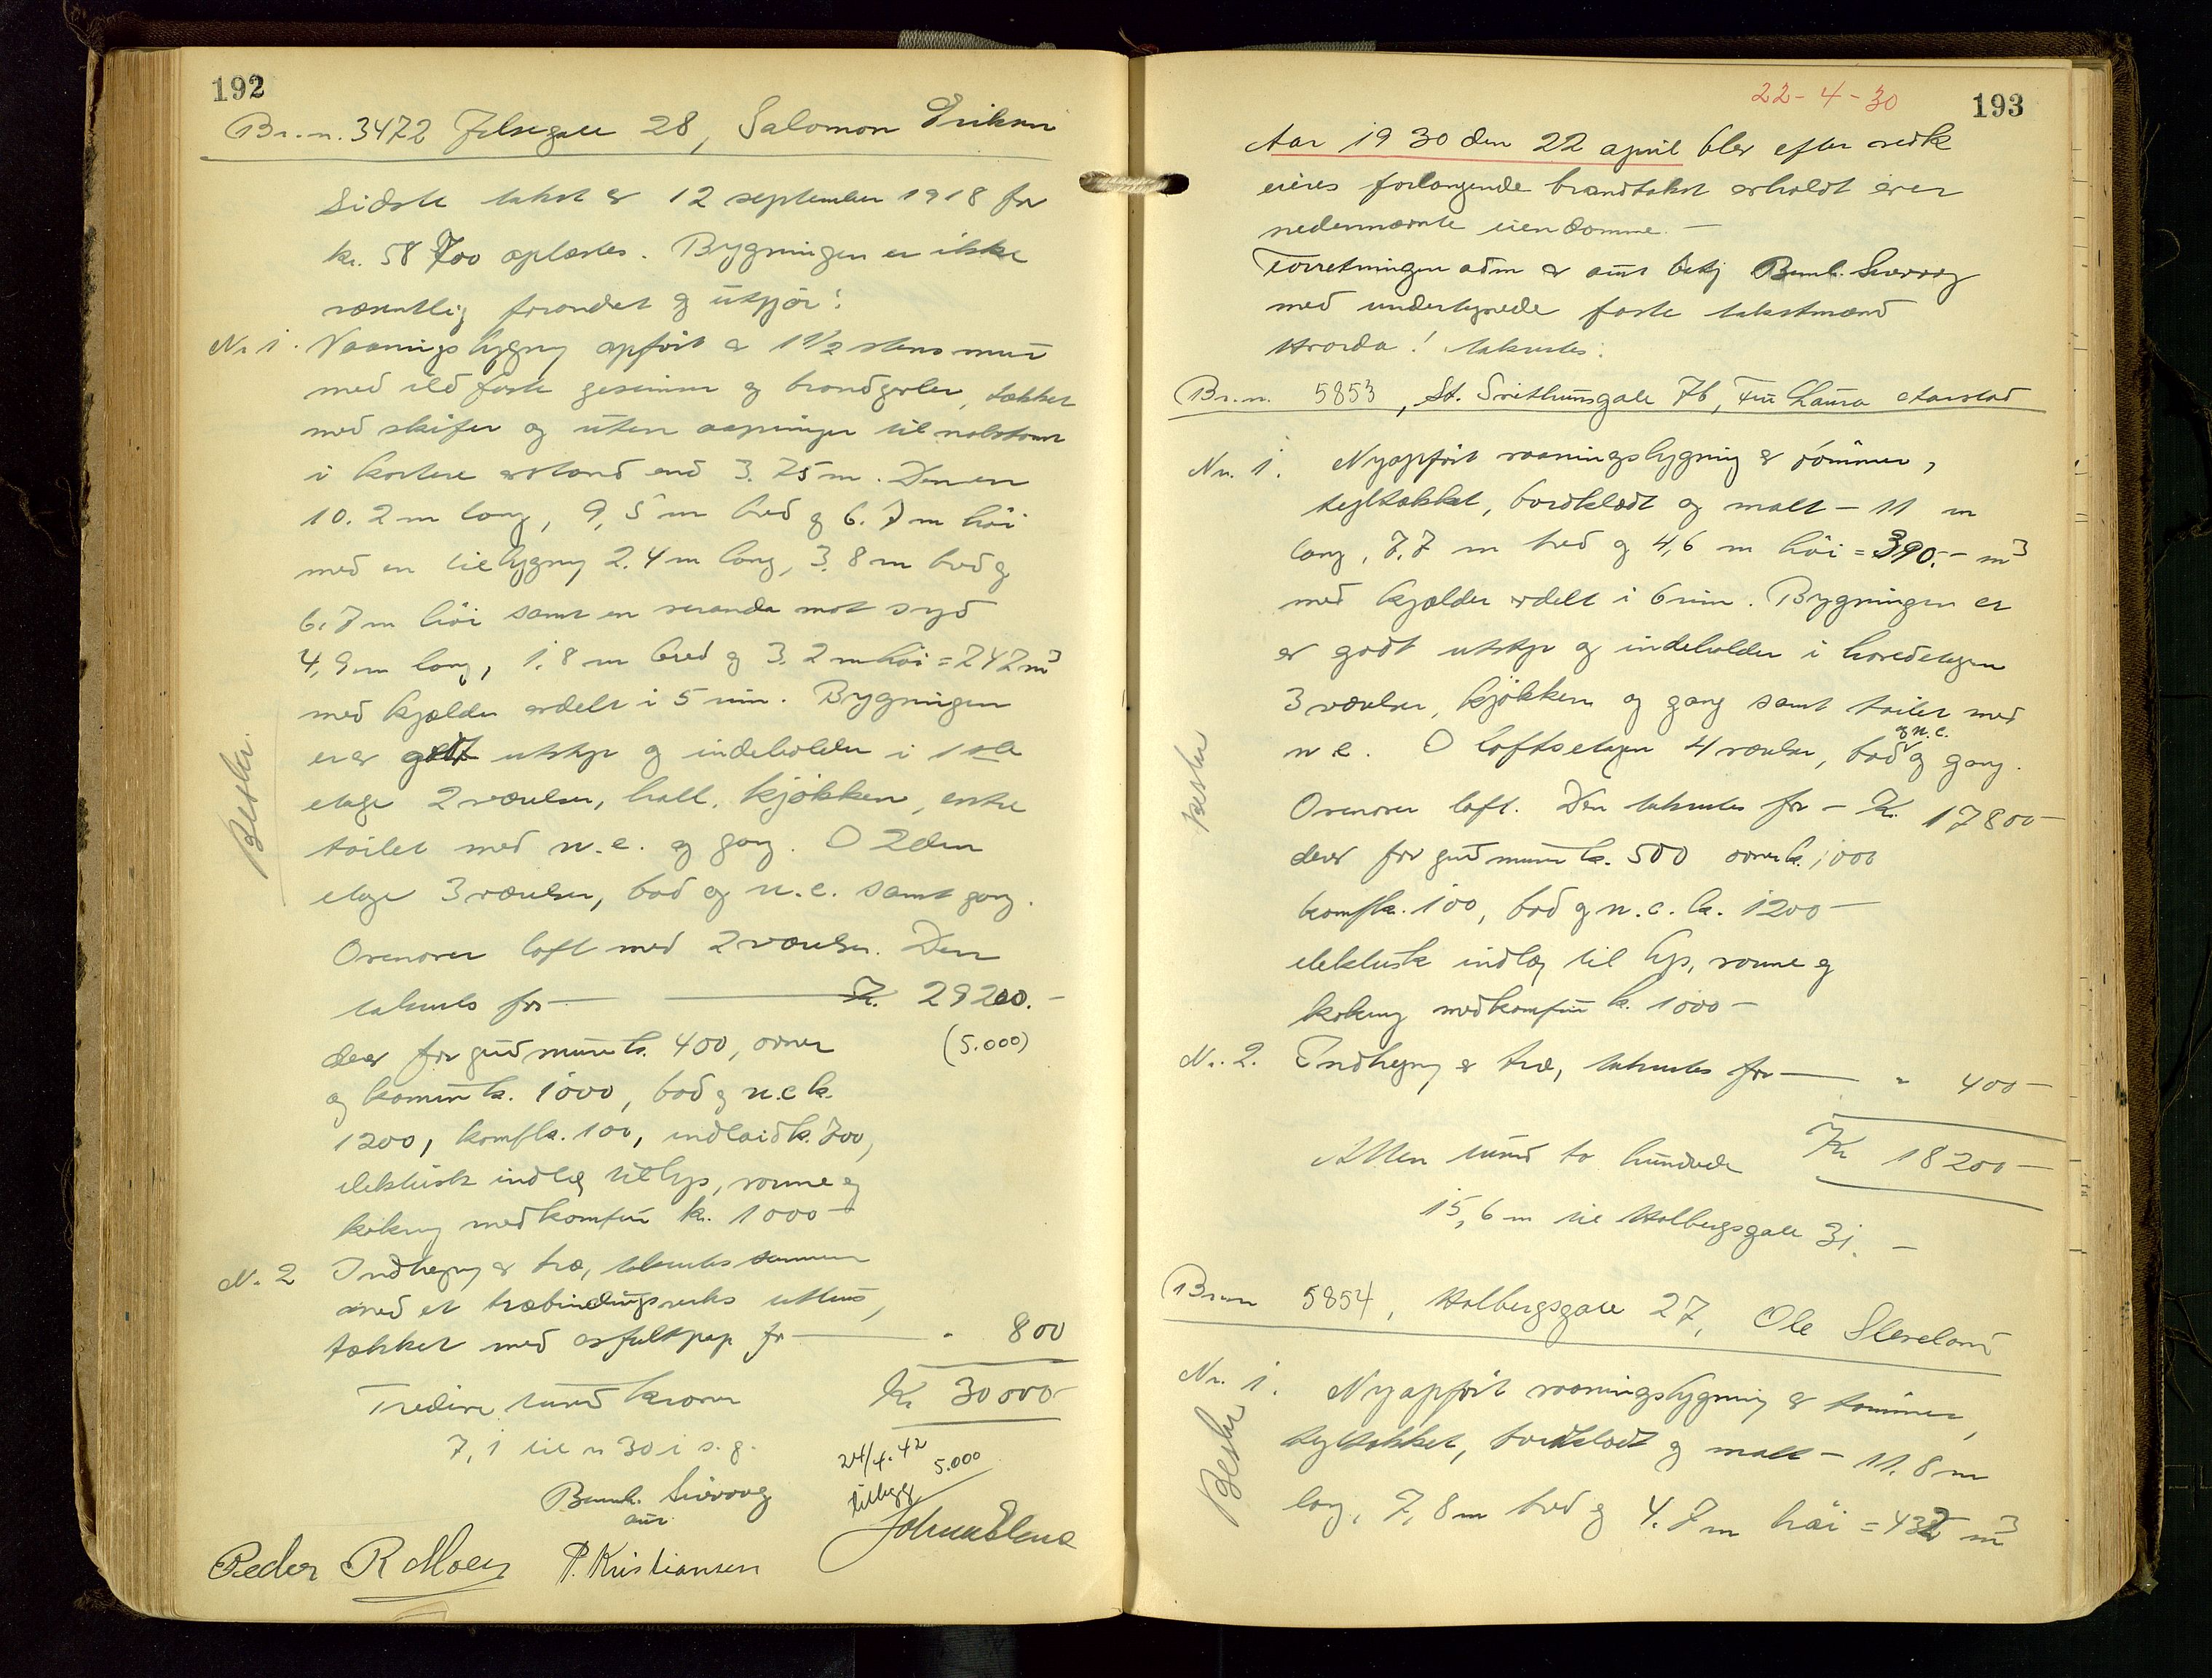 192
Br.n. 3472 Jelsegate 28, Salomon Eriksen
Sidste takst av 12 september 1918 for
kr. 58 700 oplæstes. Bygningen er ikke
væsentlig forandret og utgjör:
Nr 1. Vaaningsbygning opfört av 1 1/2 stens mur
med ildfaste gesimser og brandgavler, tækket
med skifer og uten aapninger til nabotomt
i kortere avstand end 3.75 m. Den er
10.2 m lang, 9,5 m bred og 6.7 m höi
med en tilbygning 2.4 m lang, 3.8 m bred og
6.7 m höi samt en veranda mot syd
4,9 m lang, 1.8 m bred og 3.2 m höi = 742 m³
med kjælder avdelt i 5 rum. Bygningen
er av godt utstyr og indeholder i 1ste
etage 2 værelser, hall, kjökken, entre
toilet med w.c. og gang. I 2den
etage 3 værelser, bad og w.c. samt gang.
Ovenover loft med 2 værelser. Den
takseres for — Kr. 29200.-
derav for grundmur kr. 400, ovner (5.000)
og kamin kr. 1000, bad og w.c. kr.
1200, komf kr. 100, indlaid kr. 700,
elektrisk indlæg til lys, varme og
kokning med komfur kr. 1000 -
Beskr.
Nr. 2 Indhegning av træ, takseres sammen
med et træbindingsverks uthus,
tækket med asfaltpap for — " 800
Tredive tusind kroner Kr 30000-
7,1 til nr 30 i s. g.
24/4.42
tillegg 5.000
Bernh. Sivevaag
aut.
Peder R Moen P. Kristiansen
22-4-30
193
Aar 1930 den 22 april blev efter vedk
eieres forlangende brandtakst avholdt over
nedennævnte eiendomme. -
Forretningen adm av aut. betj Bernh. Sivevaag
med undertegnede faste takstmænd
Hvorda! takseres:
Br.n. 5853, St. Svithunsgate 7b, Fru Laura Aarstad
Nr. 1. Nyopfört vaaningsbygning av tömmer,
tegltækket, bordklædt og malt - 11 m
lang, 7.7 m bred og 4,6 m höi = 390.- m³
med kjælder avdelt i 6 rum. Bygningen er
av godt utstyr og indeholder i hovedetagen
3 værelser, kjökken og gang samt toilet med
og w.c.
w c. I loftsetagen 4 værelser, bad og gang.
Ovenover loft. Den takseres for - Kr. 17800-
derav for grundmur kr. 500 ovner kr. 1000
komf kr. 100, bad og w.c. kr. 1200 -
elektrisk indlæg til lys, varme og
kokning med komfur kr. 1000 -
Beskr
Nr. 2. Indhegning av træ, takseres for — " 400 -
Atten tusind to hundrede Kr 18200 -
15,6 m til Holbergsgate 31. -
Br.nr 5854, Holbergsgate 27, Ole Sleveland
Nr. 1. Nyopfört vaaningsbygning av tömmer,
tegltækket, bordklædt og malt - 11.8 m
lang, 7,8 m bred og 4.7 m höi = 432 m³
Beskr